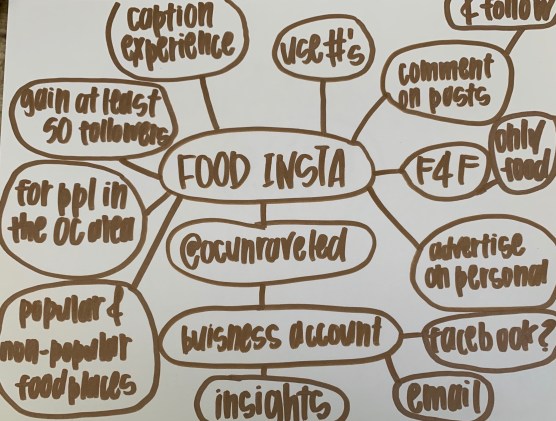 caption
experience
use #'s
& follow
comment
on posts
gain at least
50 followers
FOOD INSTA
F4F
only
food
for ppl in
the OC area
@ocunraveled
advertise
on personal
popular &
non-popular
food places
buisness account
facebook?
insights
email